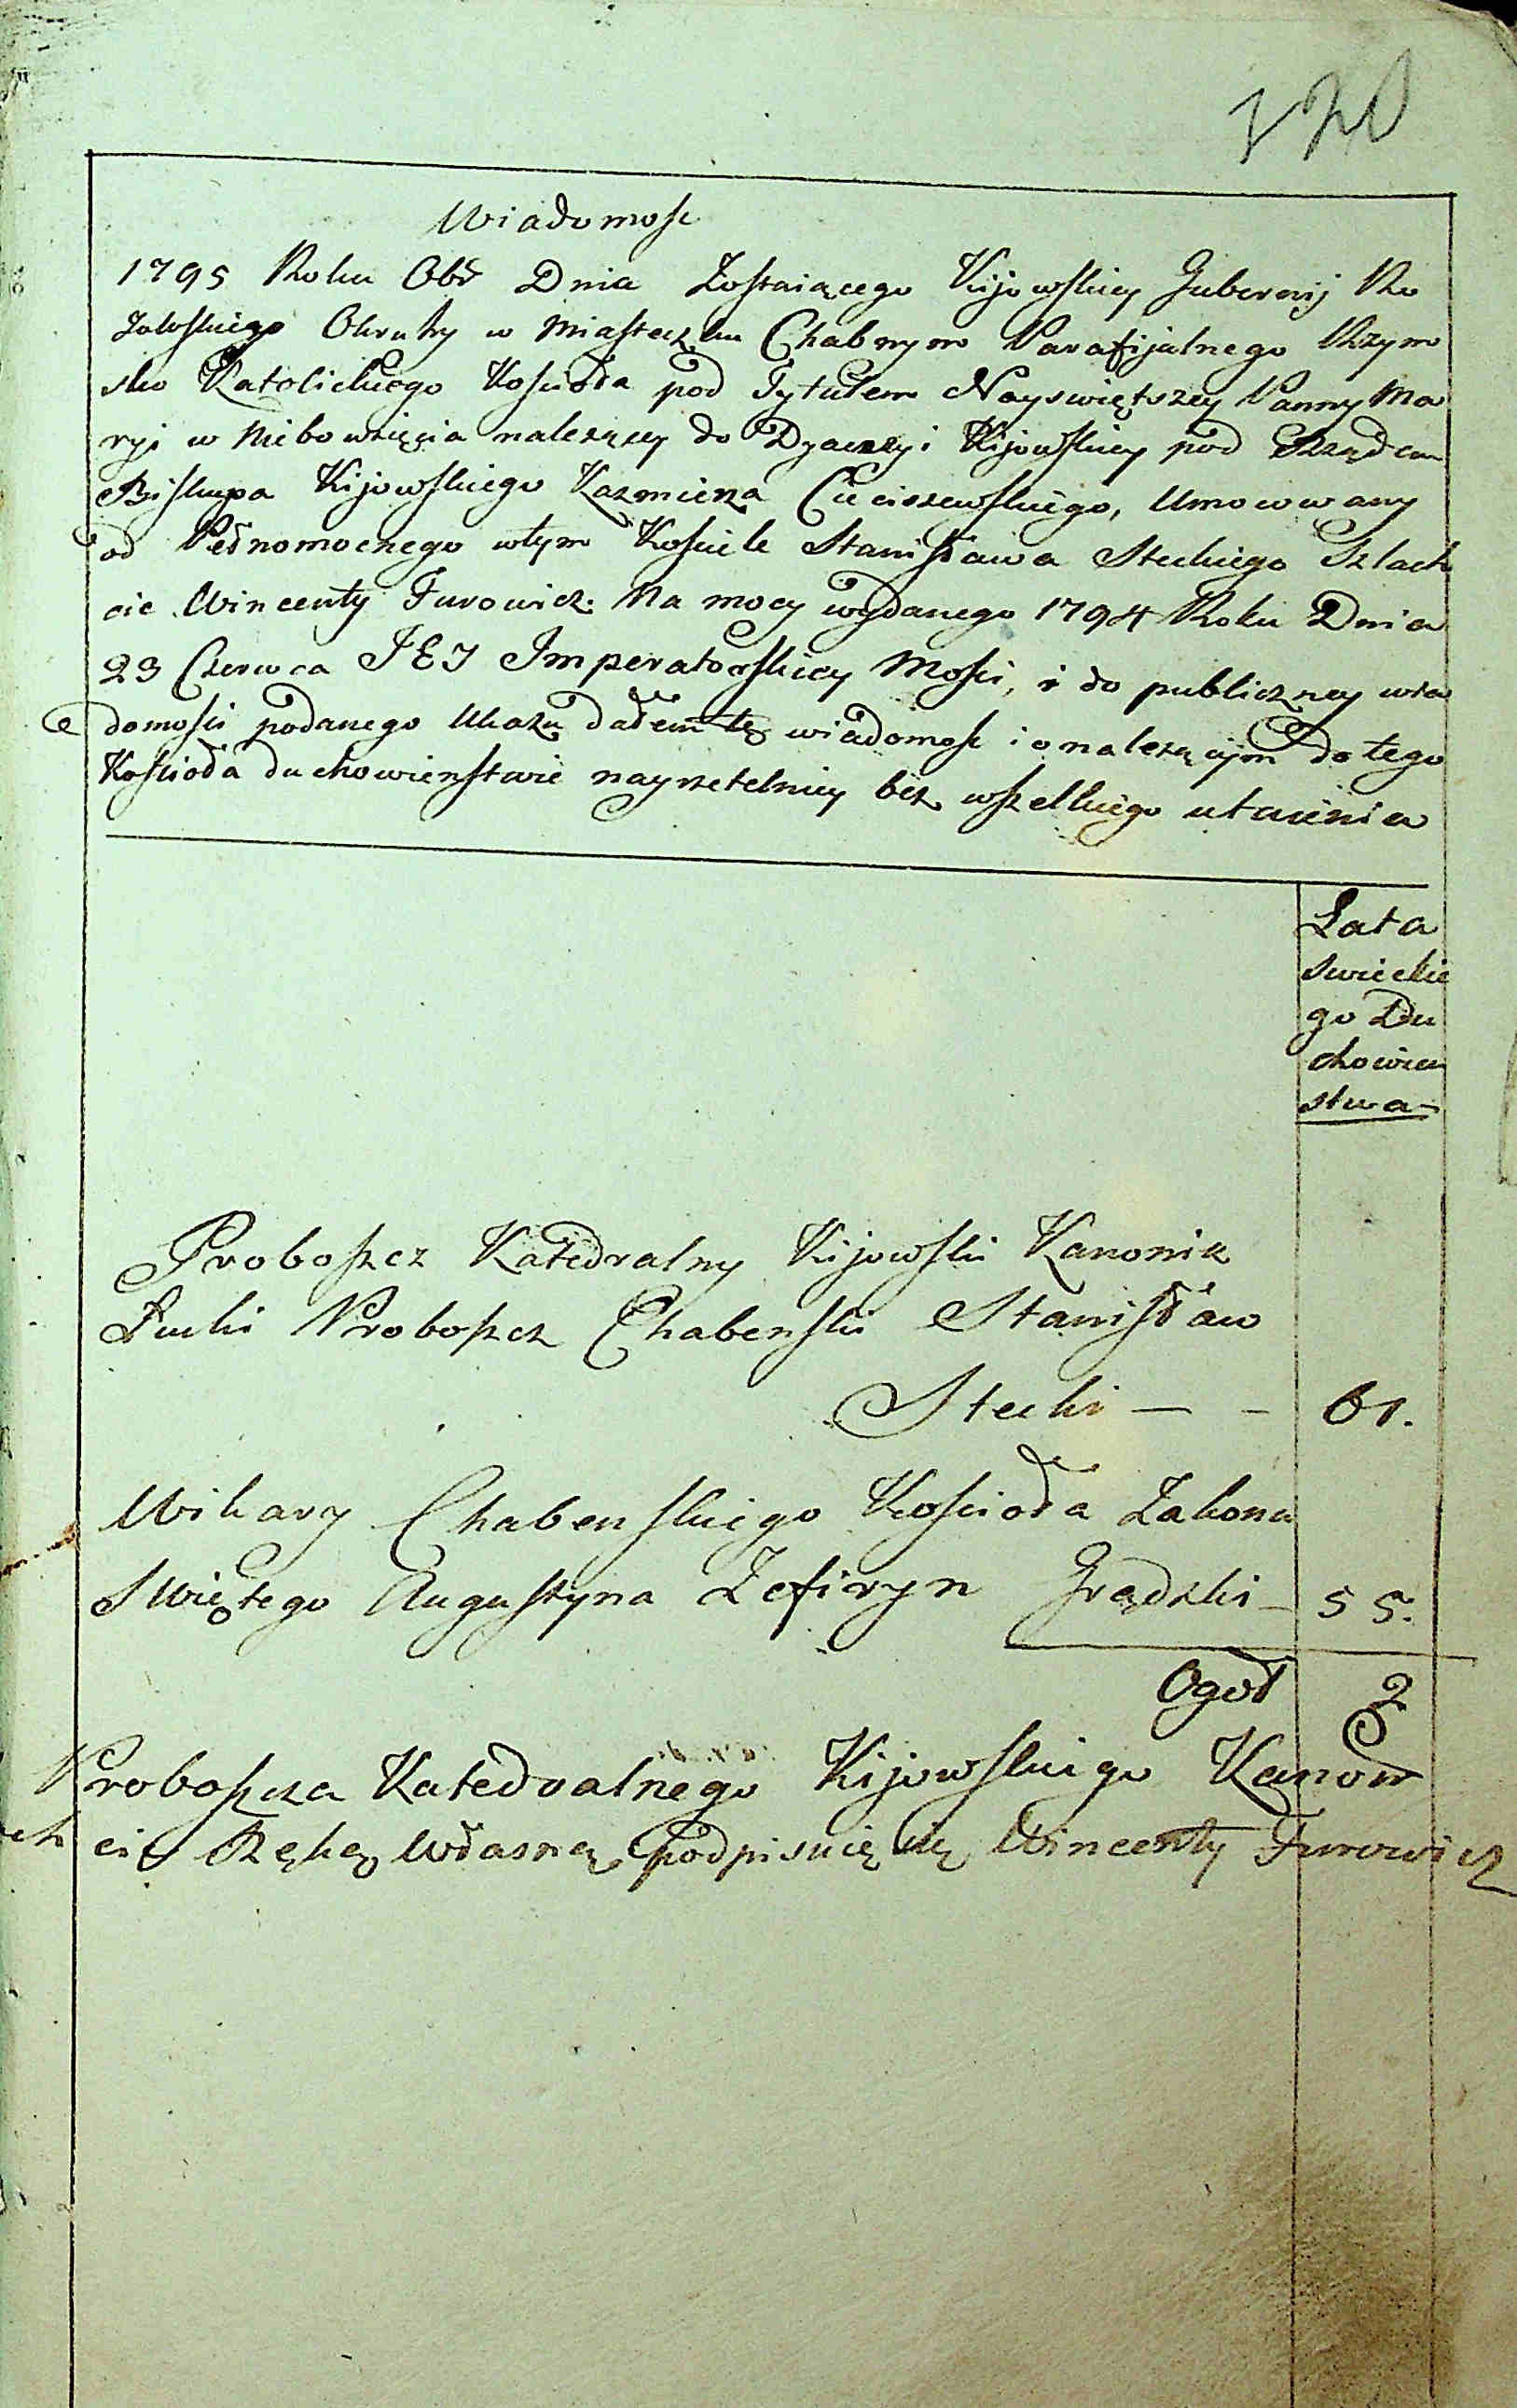 Wiadomosc
1795 Roku Obr Dnia Zostaiącego Kijowskiey Gubernij Ra
Okruhy w Miasteczku Chabnym Parafijalnego Rzym
sko Katolickiego Koscioła pod Tytułem Nayswiętszey Panny Ma
ryi w Niebowzięcia należący do Dyaecezyi Kijowskiey pod Rządem
Biskupa Kijowskiego Kazmierza Cieciszewskiego, Umocowany
od Pełnomocnego wtym Kosciele Stanisława Steckiego Szlach
cic Wincenty Turowicz. Na mocy wydanego 1794 Roku Dnia
23 Czerwca JEJ Imperatorskiey Mosci, i do publiczney wia
domosci podanego Ukazu dałem tę wiadomosc i o należącym do tego
Koscioła duchowienstwie nayrzetelniey bez wszelkiego utaienia
Lata
swieckie
go Du
chowien
stwa
Proboszcz Katedralny Kijowski Kanonik
Łucki Proboszcz Chabenski Stanisław
Stecki — - 61.
Wikary Chabenskiego Koscioła Zakonu
Swiętego Augustyna Zefiryn Grądzki - 55.
Ogoł 2
Proboszcza Katedralnego Kijowskiego Kanon
cic Ręką Własną podpisuię się Wincenty Turowicz